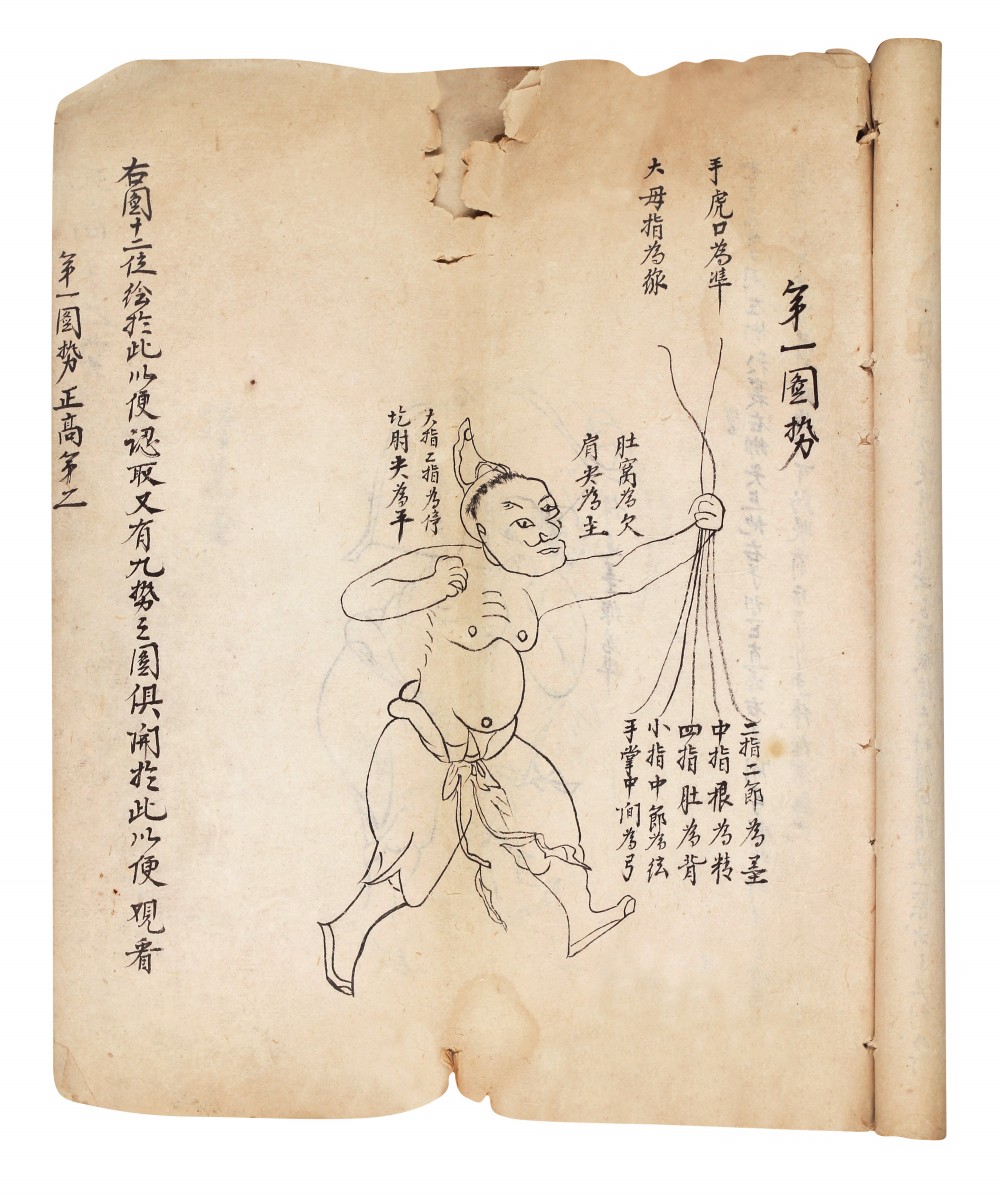 第一圖勢
手虎口為準
大母指為
肚窩為欠
肩尖為主
二指二節為墨
中指根為精
四指肚為背
小指中節為弦
手掌中间為弓
大指二指為停
圪肘尖為平
右圖十二位絵扵此以便認取又有九勢之圖俱開扵此以便观看
第一圖勢正高第之